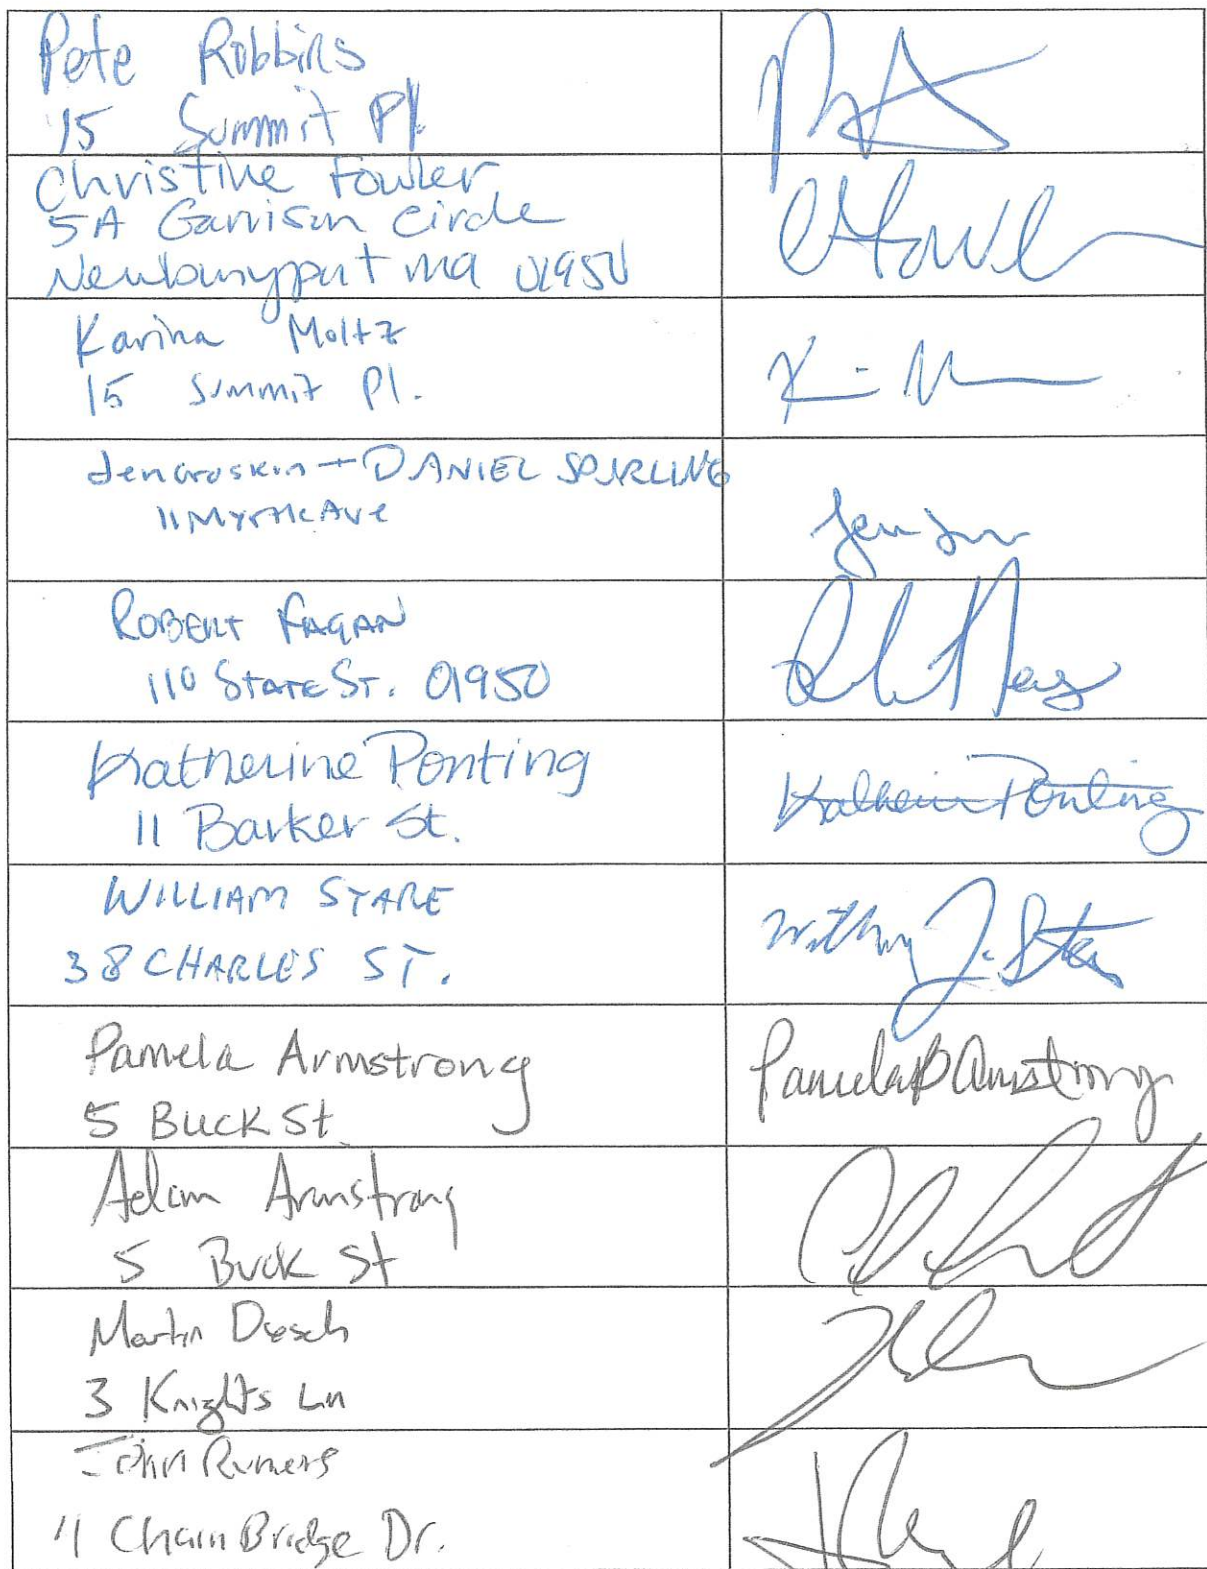 Pete Robbins
15 Summit Pl.
Christine Fowler
5A Garrison Circle
Newburyport ma 01950
Karina Moltz
15 Summit Pl.
Jen Groskin + DANIEL SPURLING
11 Myrtle Ave
ROBERT FAGAN
110 STATE ST. 01950
Katherine Ponting
Katherine Ponting
11 Barker St.
WILLIAM STARE
38 CHARLES ST.
Pamela Armstrong
Pamela B Armstrong
5 Buck St.
Adam Armstrong
5 Buck St
Martin Dosch
3 Knights Ln
John
Chain Bridge Dr.